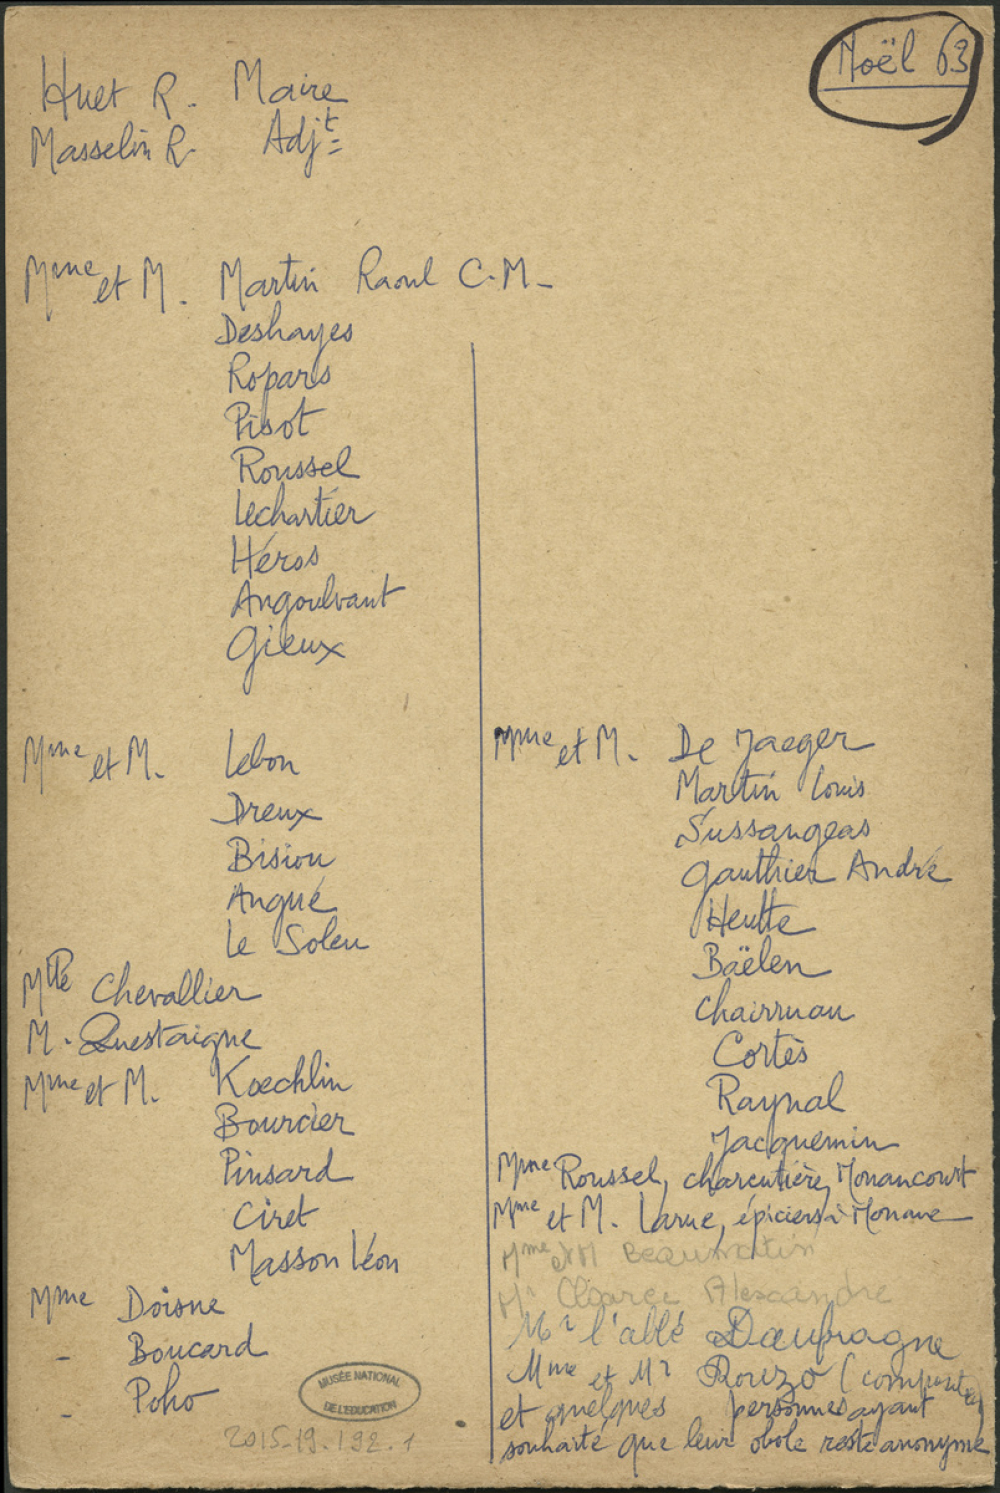 Noël 63
Huet R. Maire
Masselin R. Adjt
Mme et M. Martin Raoul C.M.
Deshayes
Ropars
Pisot
Roussel
Lechartier
Héros
Angoulvant
Gieux
Mme et M. Lebon
Dreux
Bisiou
Angué
Le Soleu
Mlle Chevallier
M. Questaigne
Mme et M. Koechlin
Bourcier
Pinsard
Ciret
Masson Léon
Mme Doisne
- Boucard
- Poho
Mme et M. De Jaeger
Martin Louis
Sussangeas
Gauthier André
Heutte
Baëlen
Chairman
Cortès
Raynal
Jacquemin
Mme Roussel, charcutière, Monancourt
Mme et M. Larue, épiciers à Monanc
Mme et M Beaumatin
Mr Alexandre
Mr l'abbé Daupragne
Mme et Mr Rouzo (
et quelques personnes ayant
souhaité que leur obole reste anonyme
MUSÉE NATIONAL
DE L'EDUCATION
2015.19.192.1